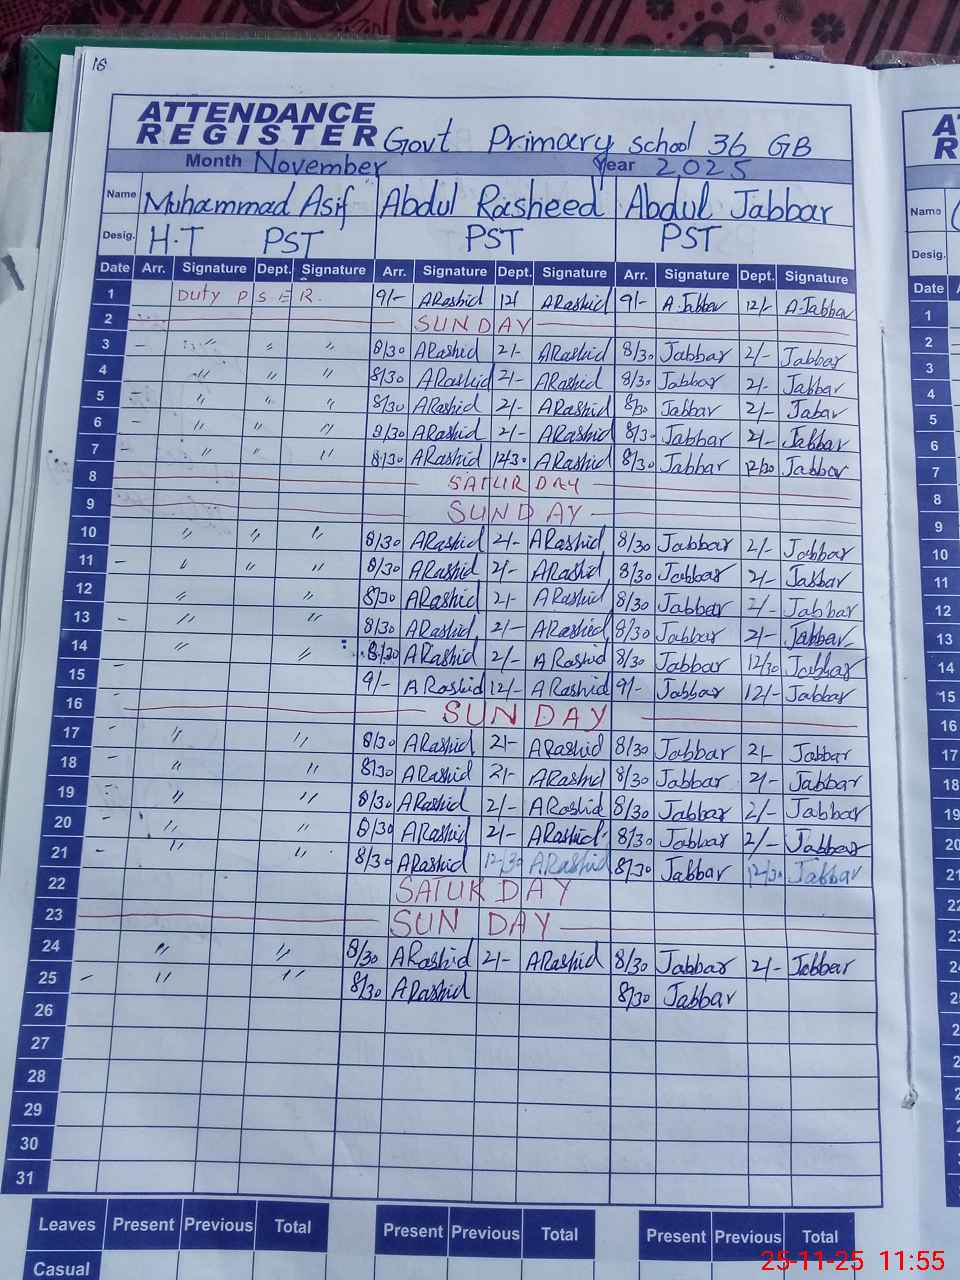 18
ATTENDANCE
REGISTER Govt Primary school 36 GB
Month November Year 2025
Name Muhammad Asif Abdul Rasheed Abdul Jabbar
Desig. H.T PST PST PST
Date Arr. Signature Dept. Signature Arr. Signature Dept. Signature Arr. Signature Dept. Signature
1 Duty P S.E R. 9/- ARashid 12/ ARashid 9/- A.Jabbar 12/- A.Jabbar
2 SUNDAY
3 - " " " 8/30 ARashid 2/- ARashid 8/30 Jabbar 2/- Jabbar
4 " " " 8/30 ARashid 2/- ARashid 8/30 Jabbar 2/- Jabbar
5 - " " " 8/30 ARashid 2/- ARashid 8/30 Jabbar 2/- Jabar
6 - " " " 8/30 ARashid 2/- ARashid 8/30 Jabbar 2/- Jabbar
7 - " " " 8/30 ARashid 12/30 ARashid 8/30 Jabbar 12/30 Jabbar
8 SATURDAY
9 SUNDAY
10 " " " 8/30 ARashid 2/- ARashid 8/30 Jabbar 2/- Jabbar
11 - " " " 8/30 ARashid 2/- ARashid 8/30 Jabbar 2/- Jabbar
12 " " 8/30 ARashid 2/- ARashid 8/30 Jabbar 2/- Jabbar
13 - " " 8/30 ARashid 2/- ARashid 8/30 Jabbar 2/- Jabbar
14 " " 8/30 ARashid 2/- ARashid 8/30 Jabbar 12/30 Jabbar
15 - 9/- ARashid 12/- ARashid 9/- Jabbar 12/- Jabbar
16 SUNDAY
17 - " " 8/30 ARashid 2/- ARashid 8/30 Jabbar 2/- Jabbar
18 - " " 8/30 ARashid 2/- ARashid 8/30 Jabbar 2/- Jabbar
19 - " " 8/30 ARashid 2/- ARashid 8/30 Jabbar 2/- Jabbar
20 - " " 8/30 ARashid 2/- ARashid 8/30 Jabbar 2/- Jabbar
21 - " " 8/30 ARashid 12/30 ARashid 8/30 Jabbar 12/30 Jabbar
22 SATURDAY
23 SUNDAY
24 " " 8/30 ARashid 2/- ARashid 8/30 Jabbar 2/- Jabbar
25 - " " 8/30 ARashid 8/30 Jabbar
26
27
28
29
30
31
Leaves Present Previous Total Present Previous Total Present Previous Total
Casual
25-11-25 11:55
Name
Desig.
Date
1
2
3
4
5
6
7
8
9
10
11
12
13
14
15
16
17
18
19
20
21